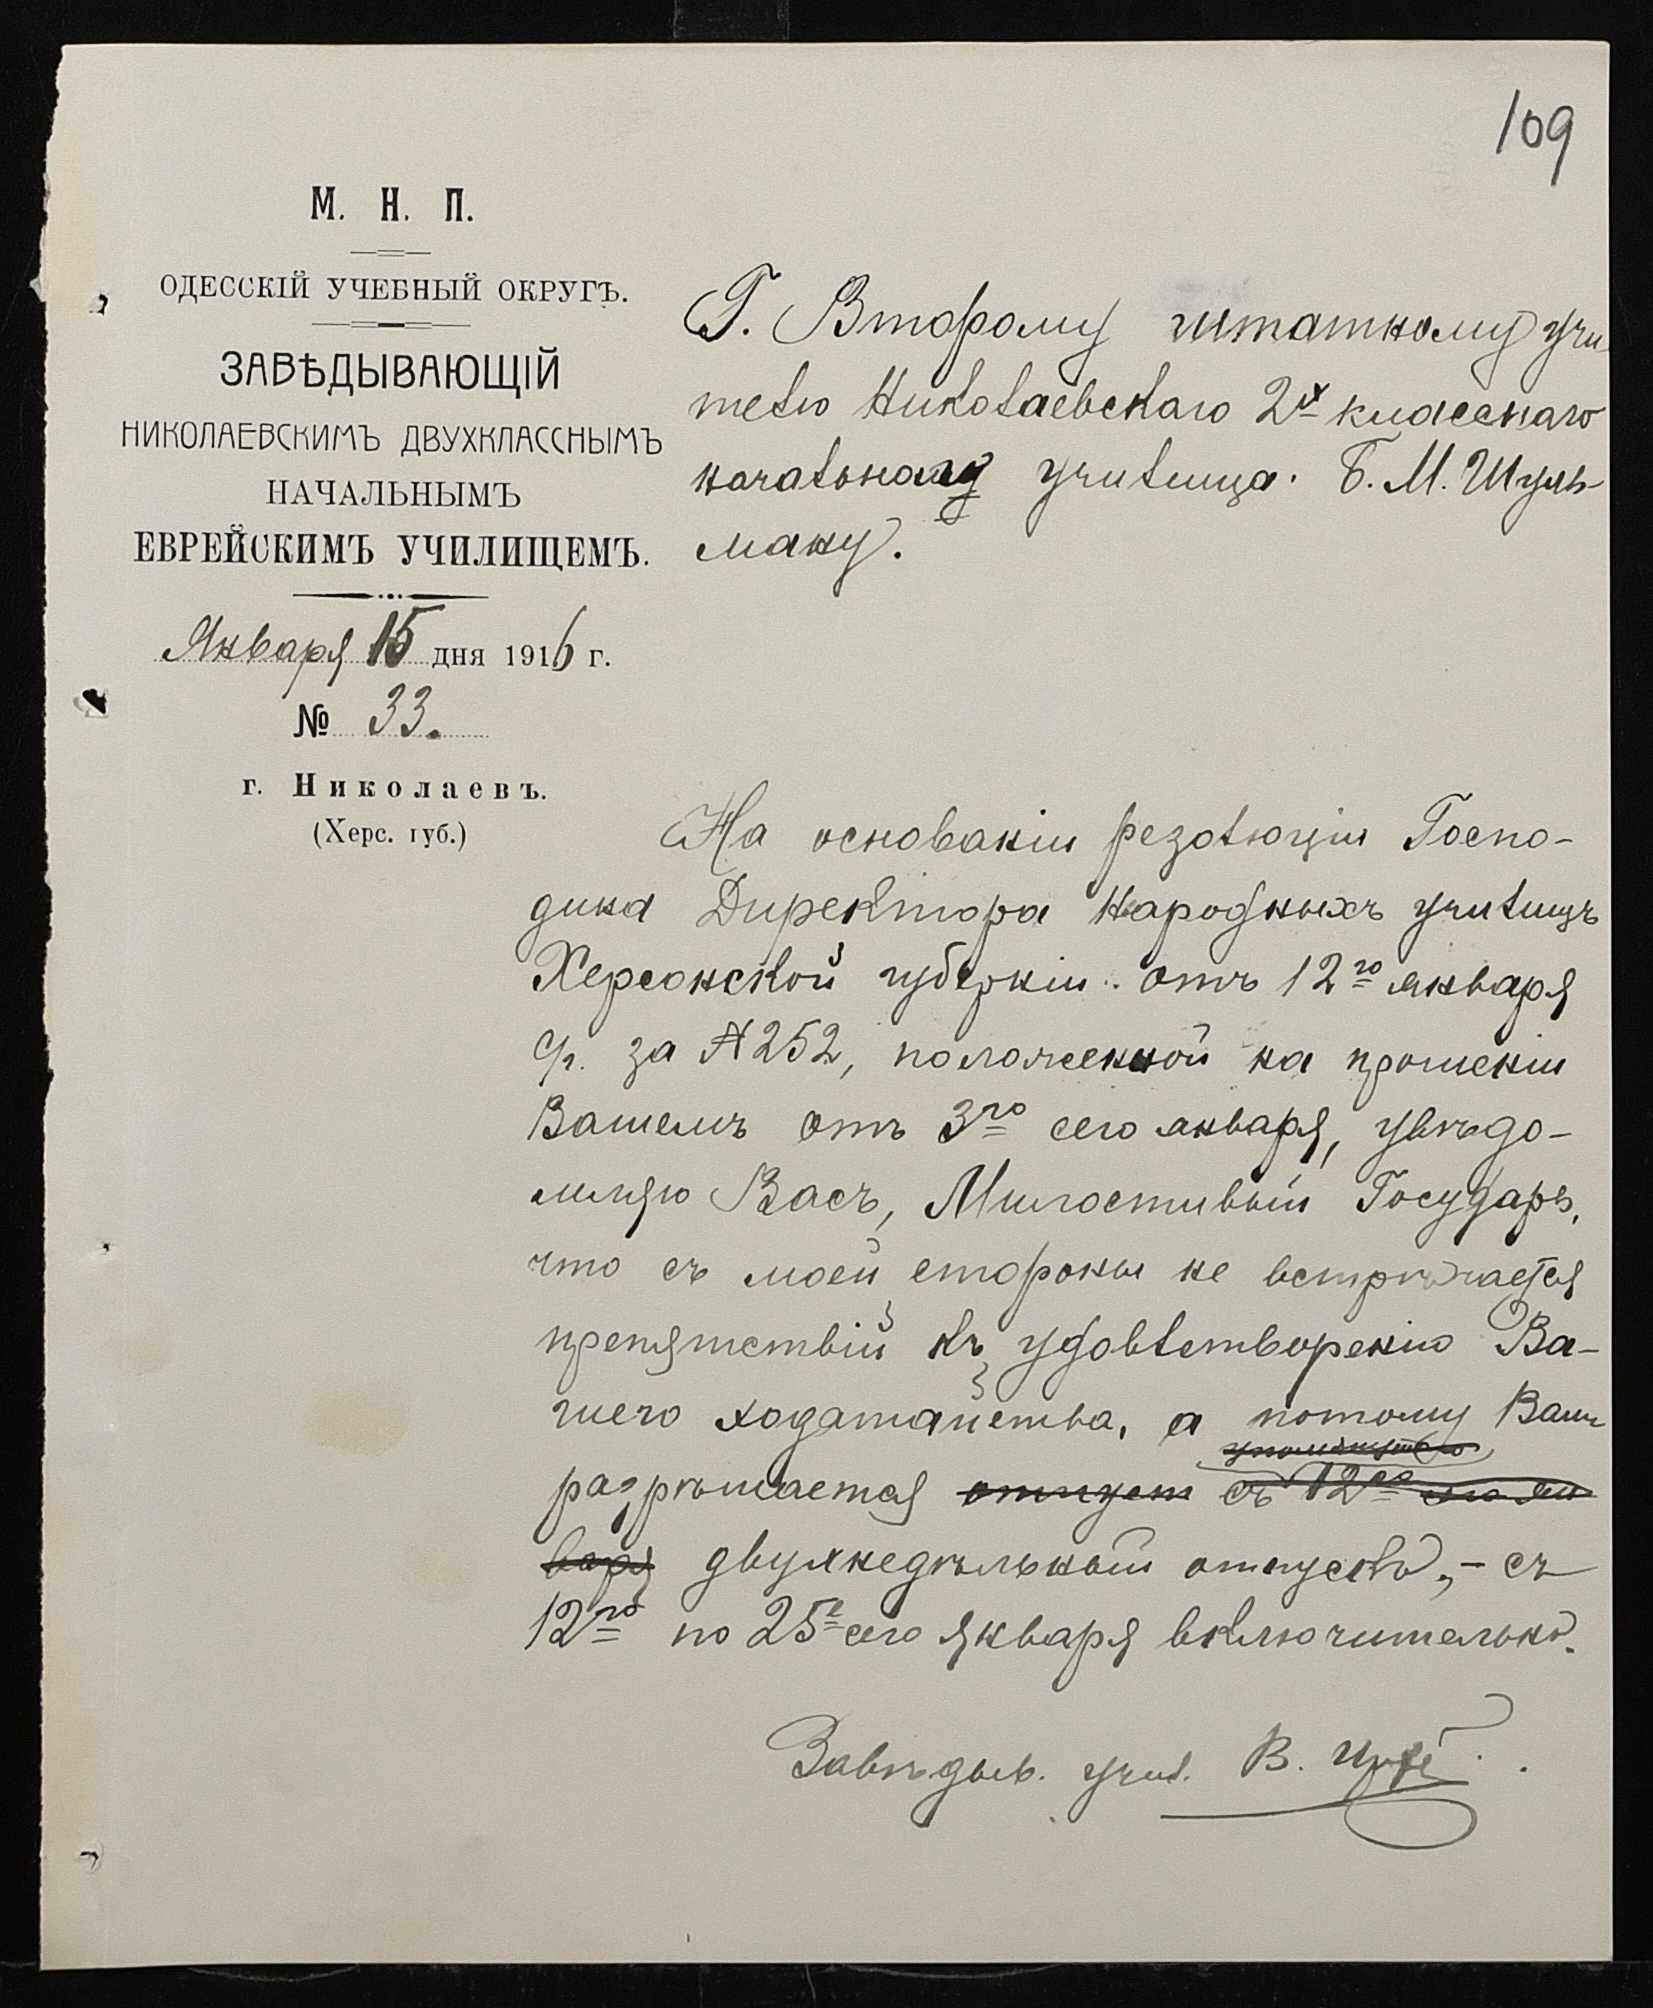 109
М. Н. П.
ОДЕССКІЙ УЧЕБНЫЙ ОКРУГЪ.
ЗАВѢДЫВАЮЩІЙ
НИКОЛАЕВСКИМЪ ДВУХКЛАССНЫМЪ
НАЧАЛЬНЫМЪ
ЕВРЕЙСКИМЪ УЧИЛИЩЕМЪ.
Января 15 дня 1916 г.
№ 33.
г. Николаевъ.
(Херс. губ.)
Г. Второму штатному учи-
телю Николаевскаго 2х класснаго
начальнаго училища. Б. М. Шуль-
ману.
На основаніи резолюціи Госпо-
дина Директора Народныхъ училищъ
Херсонской губерніи отъ 12го января
с/г. за № 252, положенной на прошеніи
Вашемъ отъ 3го сего января, увѣдо-
мляю Васъ, Милостивый Государь,
что съ моей стороны не встрѣчается
препятствій къ удовлетворенію Ва-
шего ходатайства, а потому Вамъ
разрѣшается отпускъ съ 12го сего ян
варя двухнедѣльный отпускъ, – съ
12го по 25е сего января включительно.
Завѣдыв. учил. В.